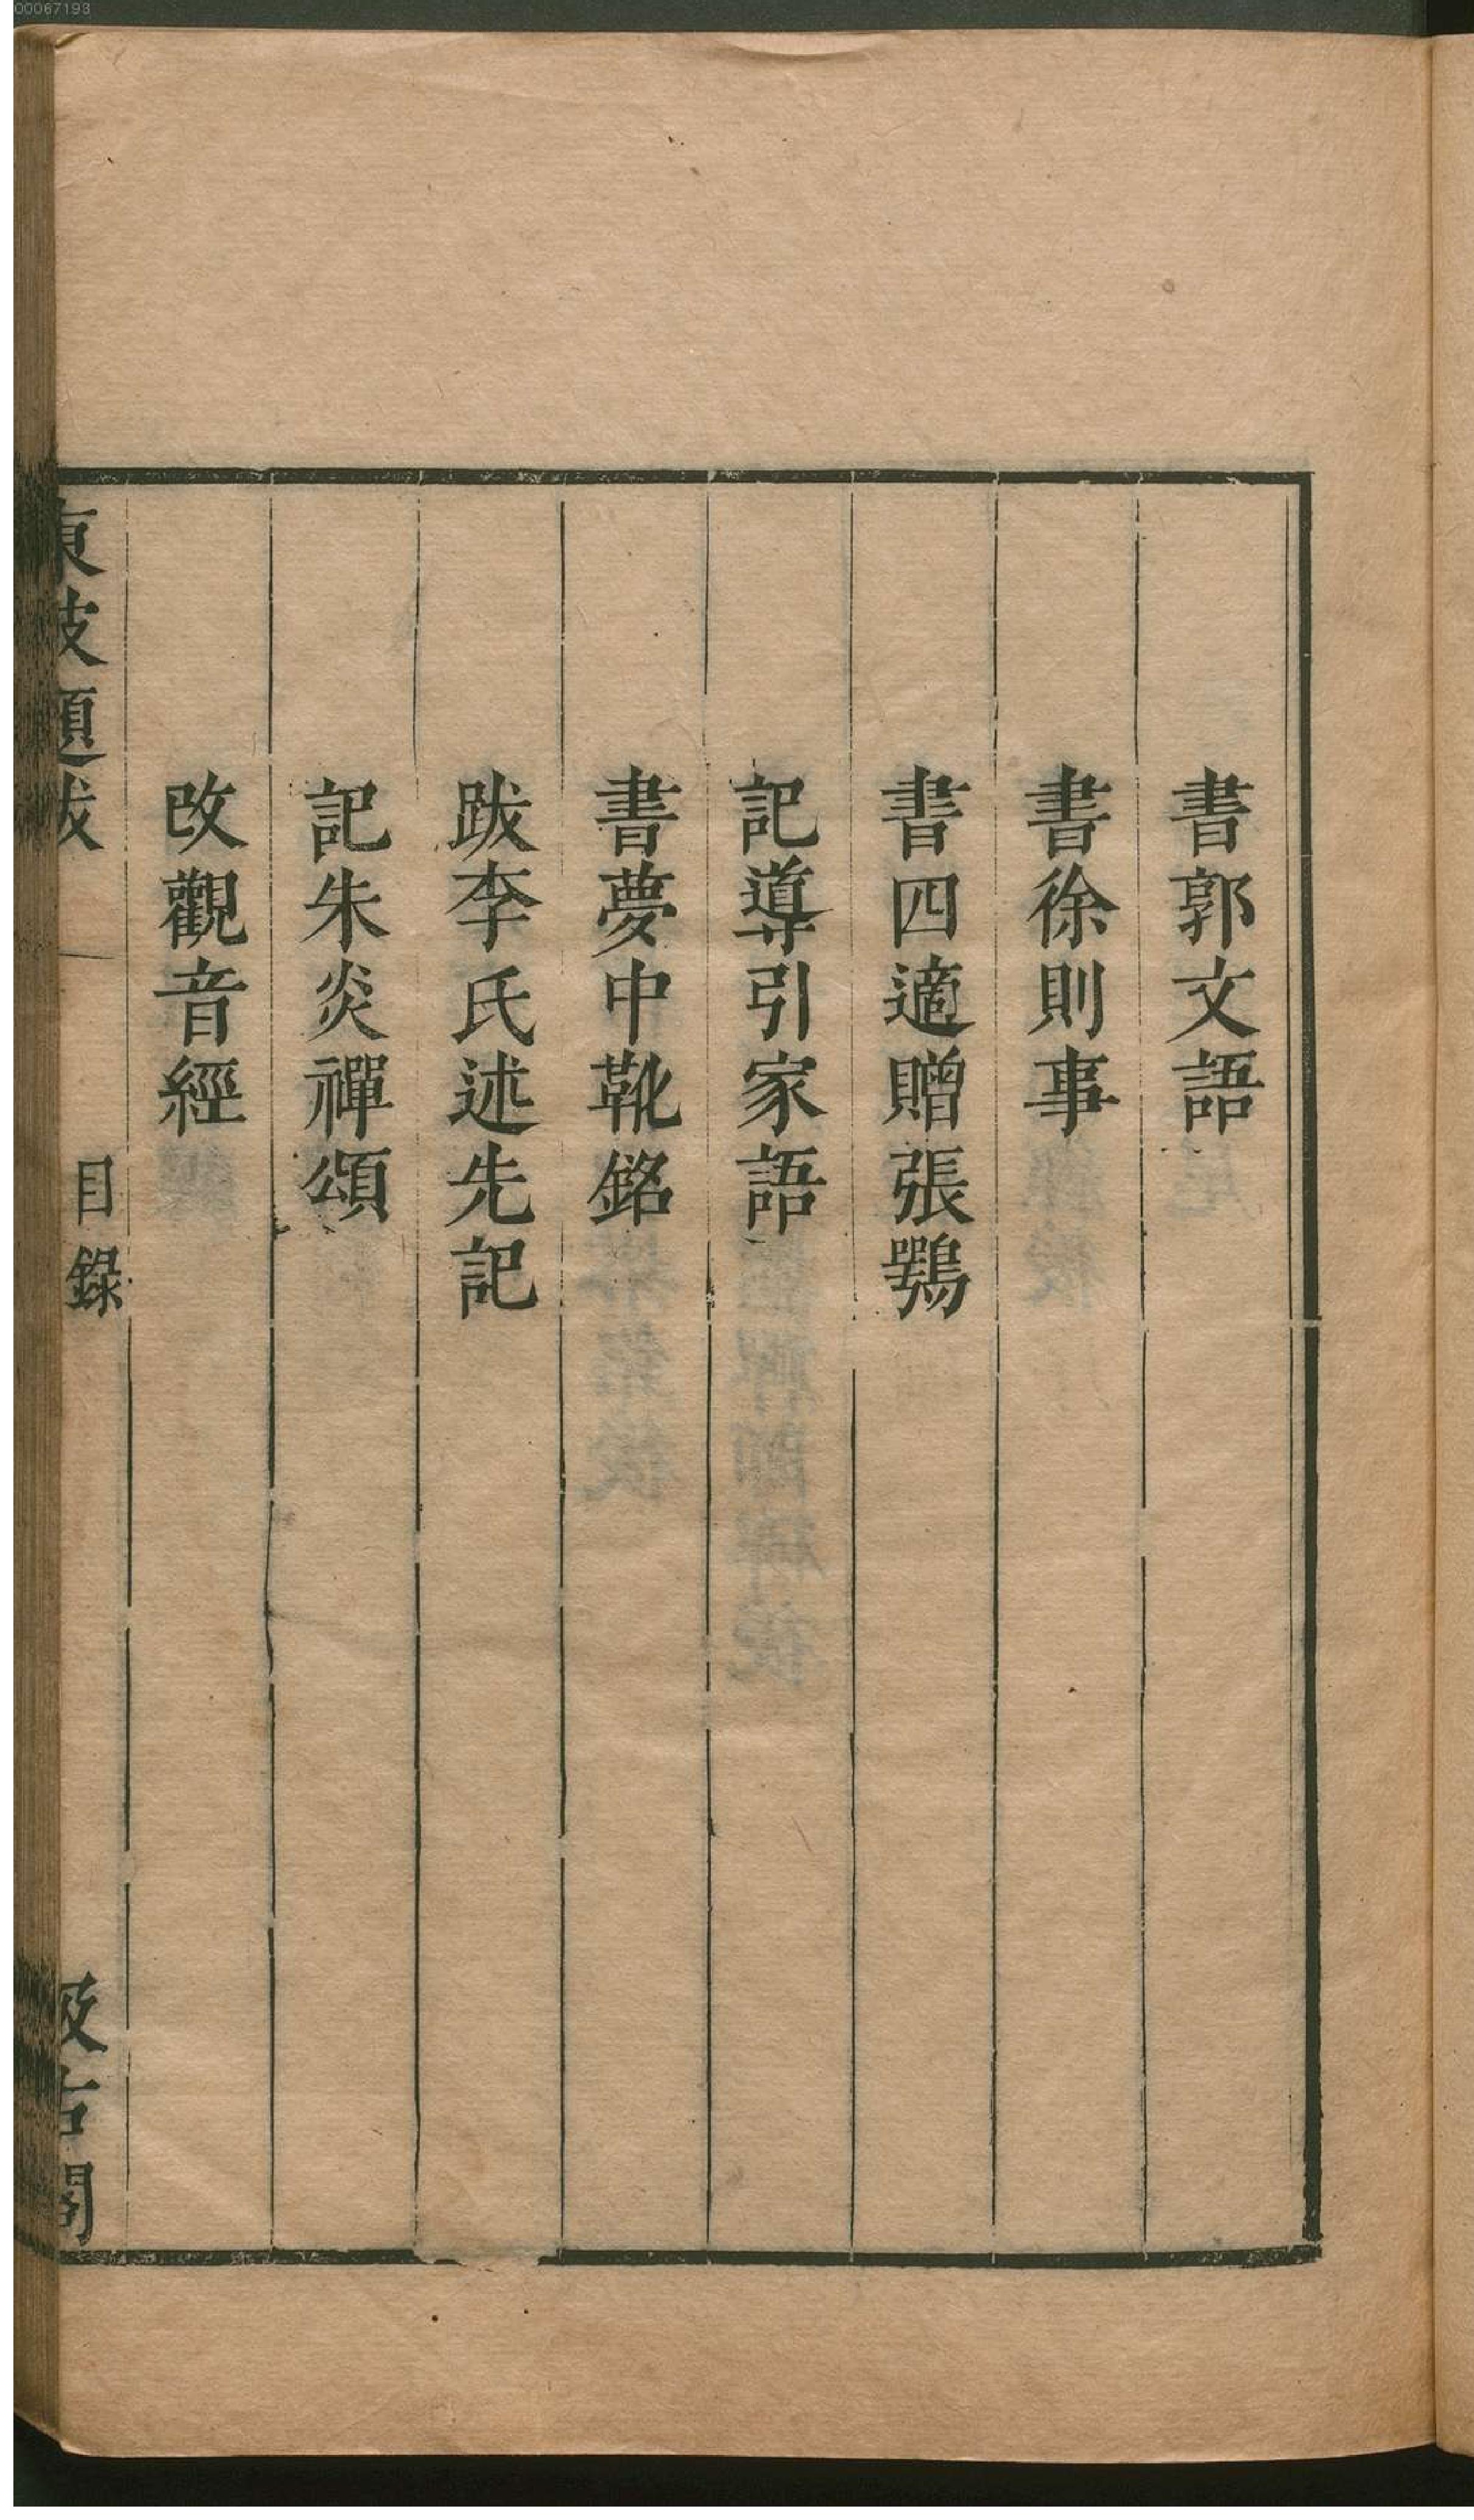 00067193
書郭文語
書徐則事
書四適贈張鶚
記導引家語
書夢中靴銘
跋李氏述先記
記朱炎禪頌
改觀音經
東坡題跋
目錄
汲古閣